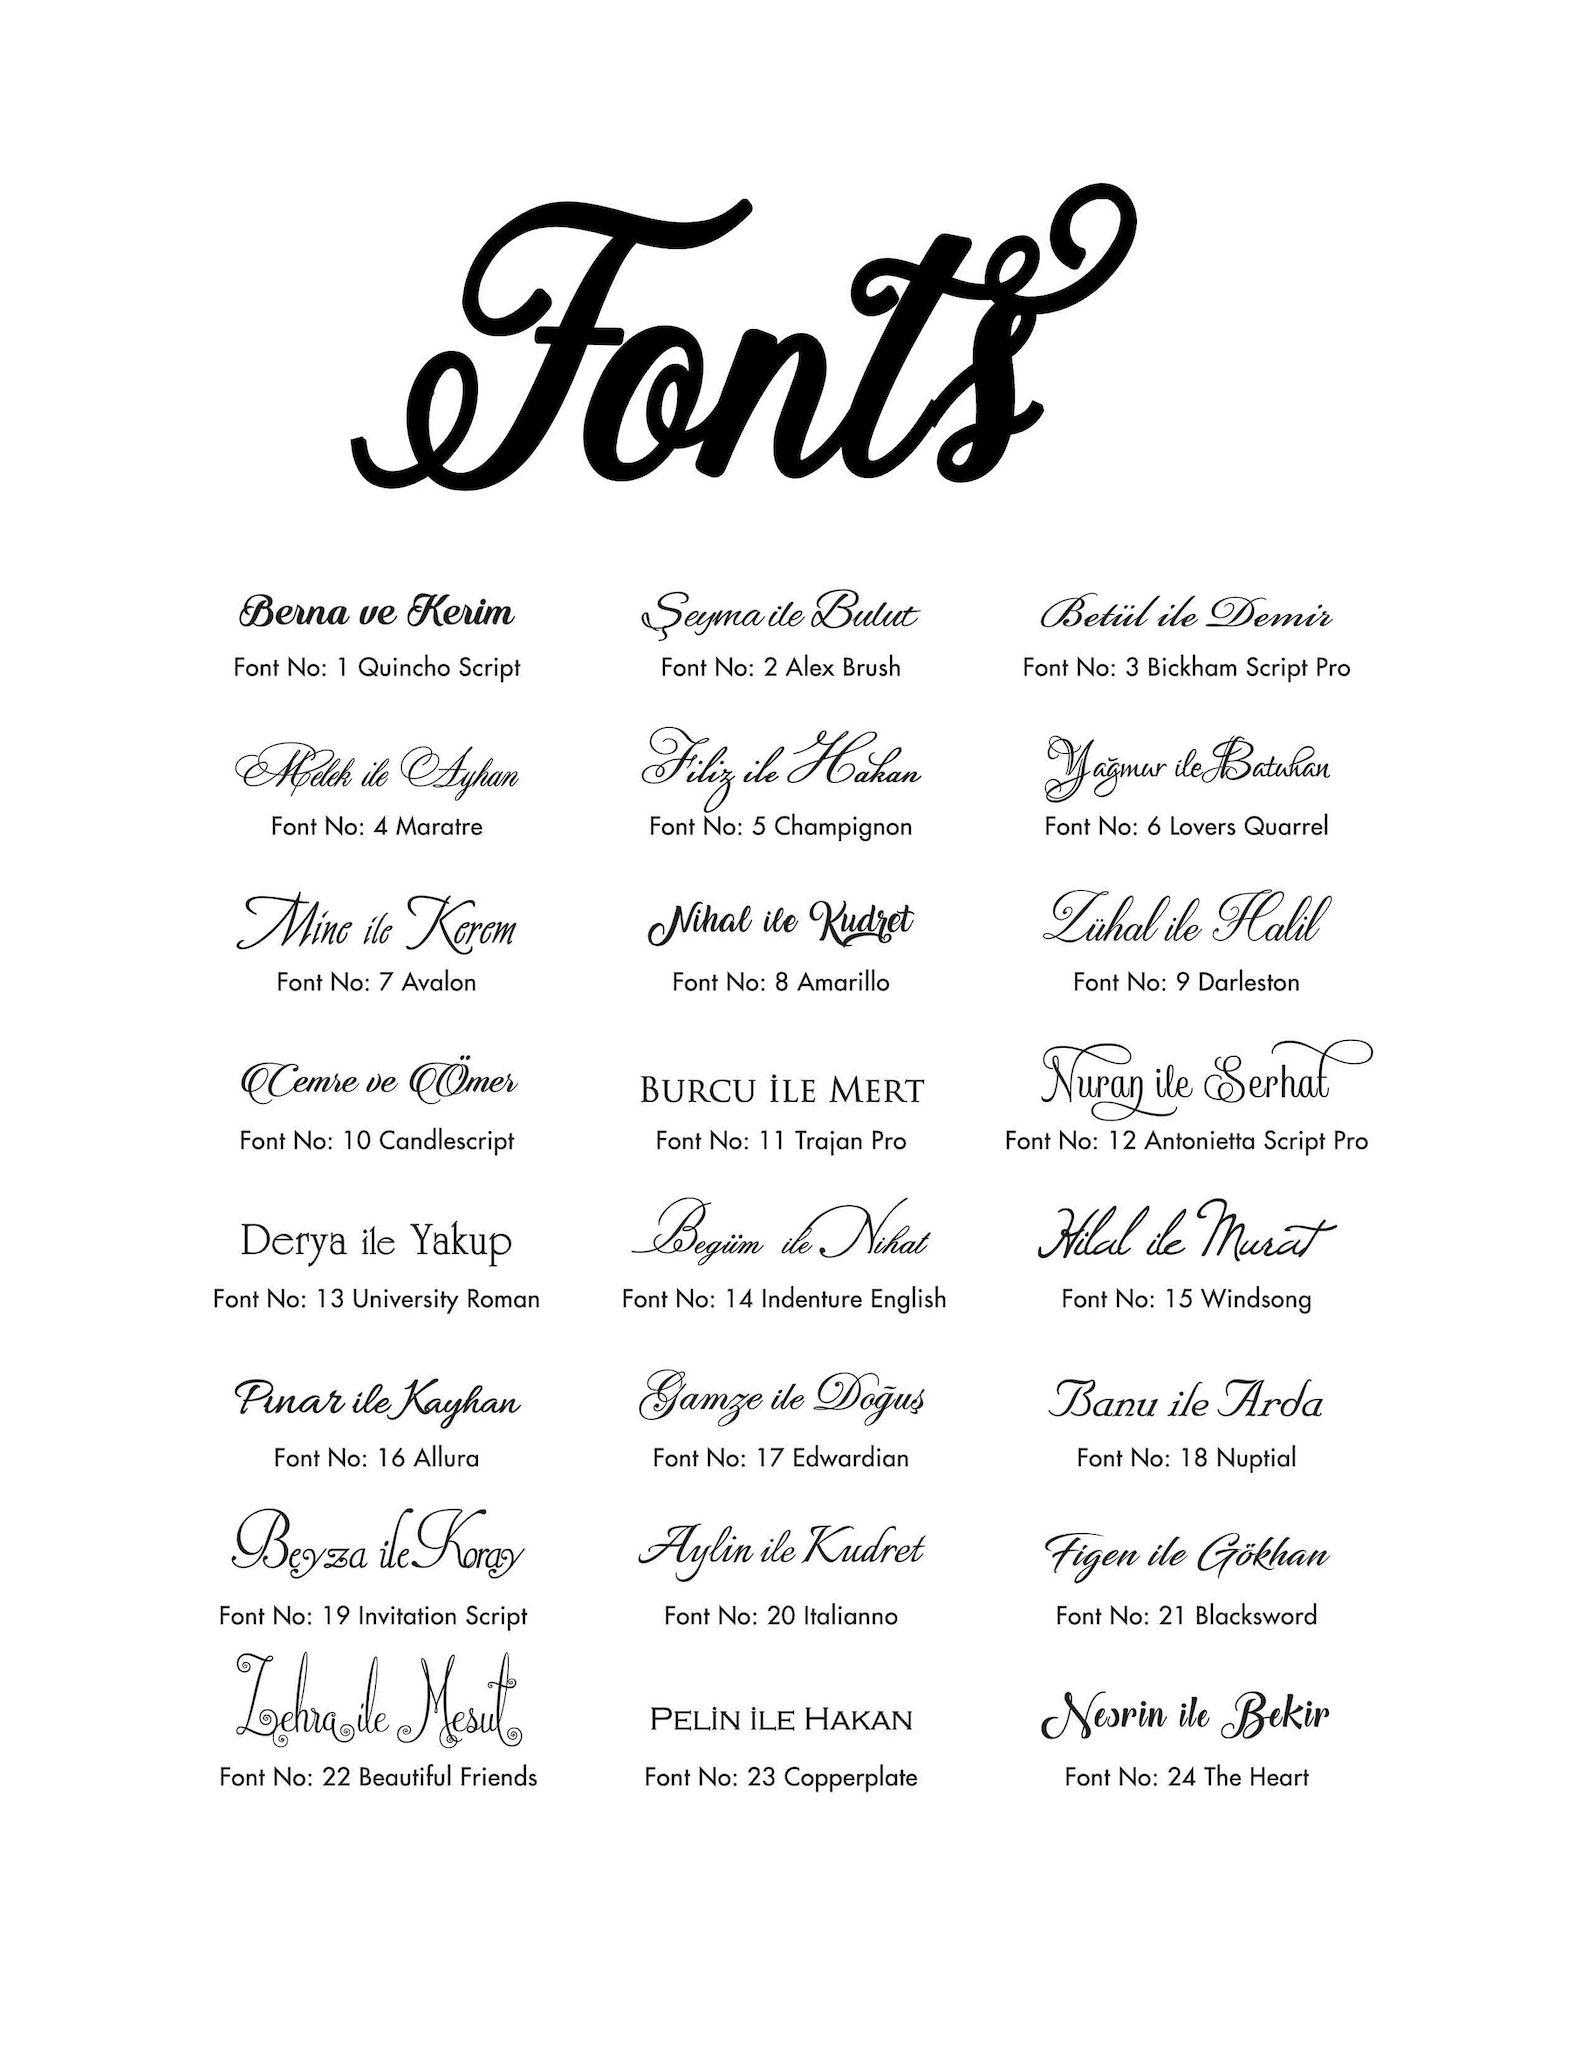 Fonts
Berna ve Kerim
Şeyma ile Bulut
Betül ile Demir
Font No: 1 Quincho Script
Font No: 2 Alex Brush
Font No: 3 Bickham Script Pro
Melek ile Ayhan
Filiz ile Hakan
Yağmur ile Batuhan
Font No: 4 Maratre
Font No: 5 Champignon
Font No: 6 Lovers Quarrel
Mine ile Kerem
Nihal ile Kudret
Zühal ile Halil
Font No: 7 Avalon
Font No: 8 Amarillo
Font No: 9 Darleston
Cemre ve Ömer
BURCU İLE MERT
Nuran ile Serhat
Font No: 10 Candlescript
Font No: 11 Trajan Pro
Font No: 12 Antonietta Script Pro
Derya ile Yakup
Begüm ile Nihat
Hilal ile Murat
Font No: 13 University Roman
Font No: 14 Indenture English
Font No: 15 Windsong
Pınar ile Kayhan
Gamze ile Doğuş
Banu ile Arda
Font No: 16 Allura
Font No: 17 Edwardian
Font No: 18 Nuptial
Beyza ile Koray
Aylin ile Kudret
Figen ile Gökhan
Font No: 19 Invitation Script
Font No: 20 Italianno
Font No: 21 Blacksword
Zehra ile Mesut
PELİN İLE HAKAN
Nesrin ile Bekir
Font No: 22 Beautiful Friends
Font No: 23 Copperplate
Font No: 24 The Heart